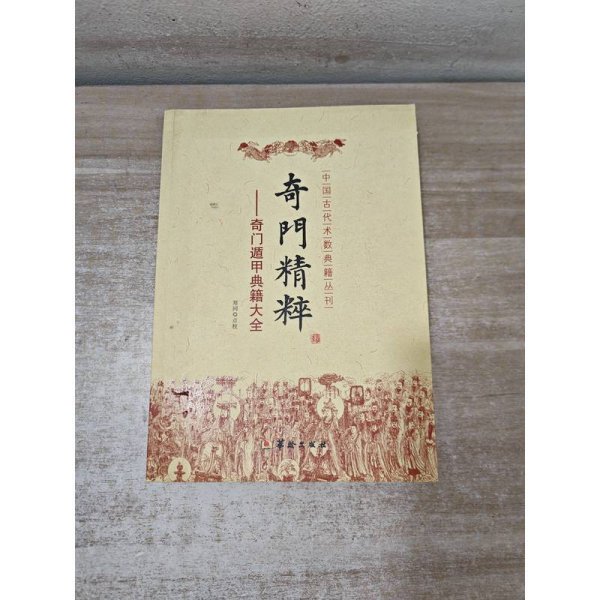 中国古代术数典籍丛刊
奇門精粹
——奇门遁甲典籍大全
郑同◎点校
华龄出版社